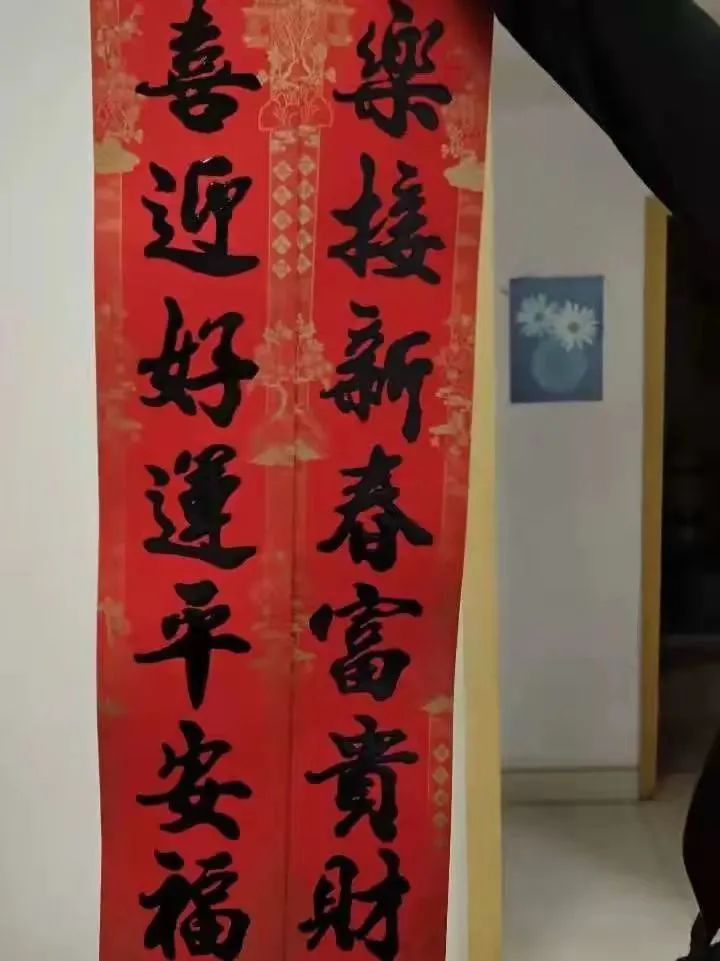 樂接新春富貴財
喜迎好運平安福